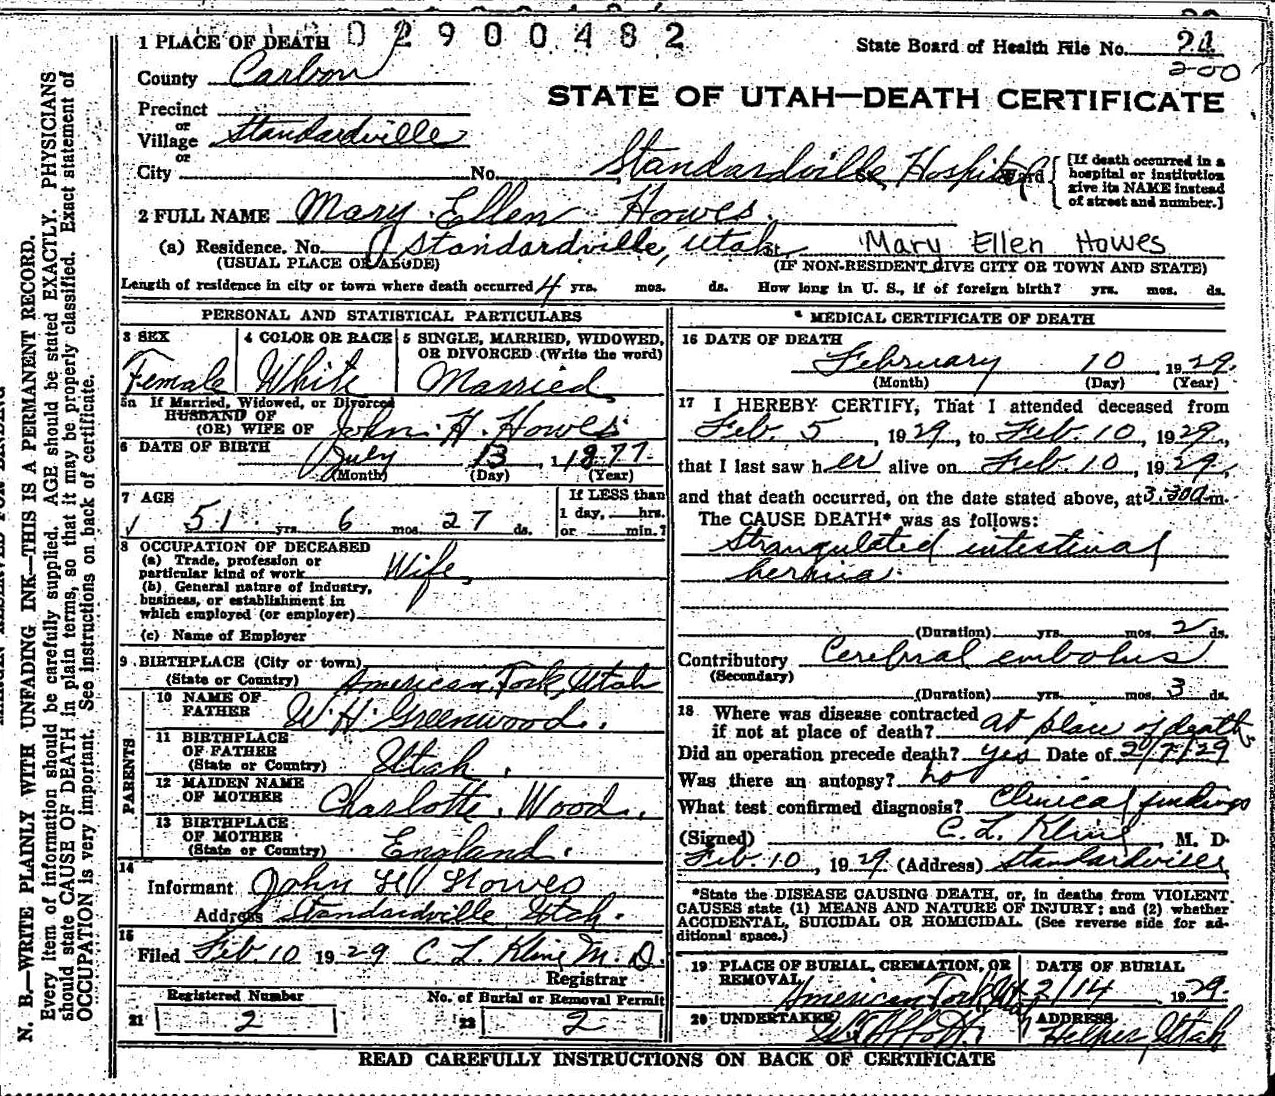 02900482
1 PLACE OF DEATH
State Board of Health File No. 24
200
County Carbon
STATE OF UTAH—DEATH CERTIFICATE
Precinct
or
Village Standardville
or
City No. Standardville Hospital
[If death occurred in a hospital or institution give its NAME instead of street and number.]
2 FULL NAME Mary Ellen Howes
(a) Residence. No. Standardville, Utah St. Mary Ellen Howes
(USUAL PLACE OF ABODE) (IF NON-RESIDENT GIVE CITY OR TOWN AND STATE)
Length of residence in city or town where death occurred 4 yrs. mos. ds. How long in U. S., if of foreign birth? yrs. mos. ds.
PERSONAL AND STATISTICAL PARTICULARS
3 SEX
Female
4 COLOR OR RACE
White
5 SINGLE, MARRIED, WIDOWED,
OR DIVORCED (Write the word)
Married
5a If Married, Widowed, or Divorced
HUSBAND OF
(OR) WIFE OF John H. Howes
6 DATE OF BIRTH
July 13, 1877
(Month) (Day) (Year)
7 AGE
51 yrs. 6 mos. 27 ds.
If LESS than
1 day, hrs.
or min.?
8 OCCUPATION OF DECEASED
(a) Trade, profession or
particular kind of work Wife
(b) General nature of industry,
business, or establishment in
which employed (or employer)
(c) Name of Employer
9 BIRTHPLACE (City or town)
(State or Country) American Fork, Utah
PARENTS
10 NAME OF
FATHER W. H. Greenwood.
11 BIRTHPLACE
OF FATHER
(State or Country) Utah.
12 MAIDEN NAME
OF MOTHER Charlotte Wood.
13 BIRTHPLACE
OF MOTHER
(State or Country) England.
14
Informant John Howes
Address Standardville Utah.
15
Filed Feb. 10 1929 C L Kline M. D.
Registrar
Registered Number
21 2
No. of Burial or Removal Permit
22 2
MEDICAL CERTIFICATE OF DEATH
16 DATE OF DEATH
February 10, 1929
(Month) (Day) (Year)
17 I HEREBY CERTIFY, That I attended deceased from
Feb. 5, 1929, to Feb. 10, 1929,
that I last saw her alive on Feb. 10, 1929,
and that death occurred, on the date stated above, at 3:30a m.
The CAUSE DEATH* was as follows:
Strangulated intestinal
hernia.
(Duration) yrs. mos. 2 ds.
Contributory Cerebral embolus
(Secondary)
(Duration) yrs. mos. 3 ds.
18 Where was disease contracted
if not at place of death? at place of death
Did an operation precede death? yes Date of 2/7/29
Was there an autopsy? no
What test confirmed diagnosis? Clinical findings
(Signed) C. L. Kline M. D.
Feb. 10, 1929 (Address) Standardville
*State the DISEASE CAUSING DEATH, or, in deaths from VIOLENT
CAUSES state (1) MEANS AND NATURE OF INJURY; and (2) whether
ACCIDENTAL, SUICIDAL OR HOMICIDAL. (See reverse side for ad-
ditional space.)
19 PLACE OF BURIAL, CREMATION, OR
REMOVAL
American Fork
DATE OF BURIAL
2/14, 1929
20 UNDERTAKER
ADDRESS
Helper, Utah
READ CAREFULLY INSTRUCTIONS ON BACK OF CERTIFICATE
N. B.—WRITE PLAINLY WITH UNFADING INK—THIS IS A PERMANENT RECORD.
Every item of information should be carefully supplied. AGE should be stated EXACTLY. PHYSICIANS
should state CAUSE OF DEATH in plain terms, so that it may be properly classified. Exact statement of
OCCUPATION is very important. See instructions on back of certificate.